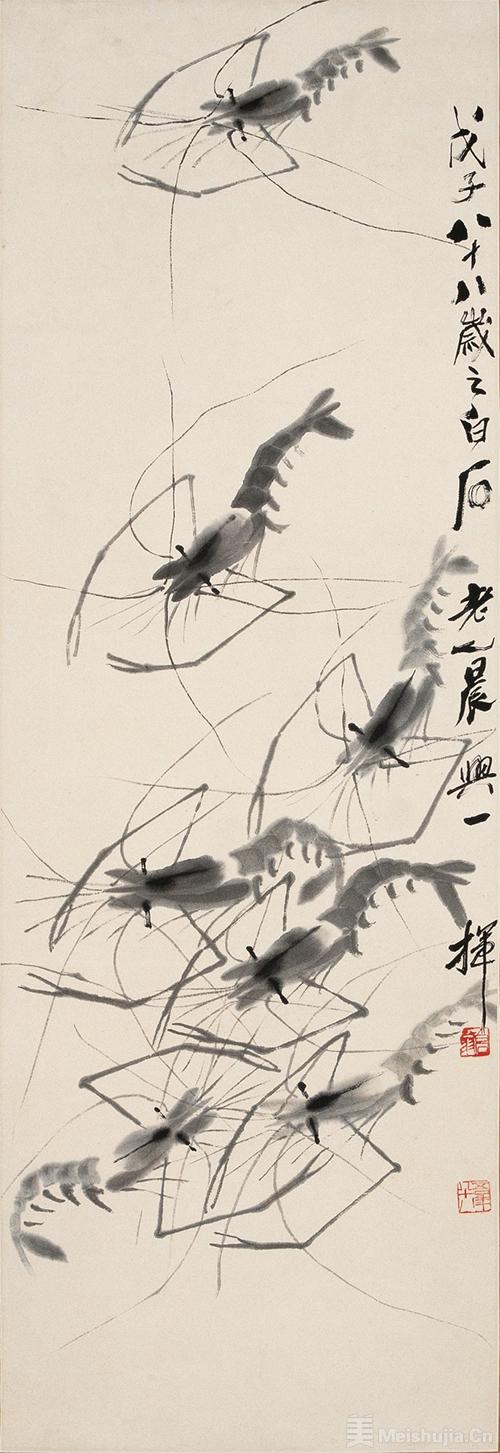 戊子八十八歲之白石老人晨興一揮
美 Meishujia.Cn